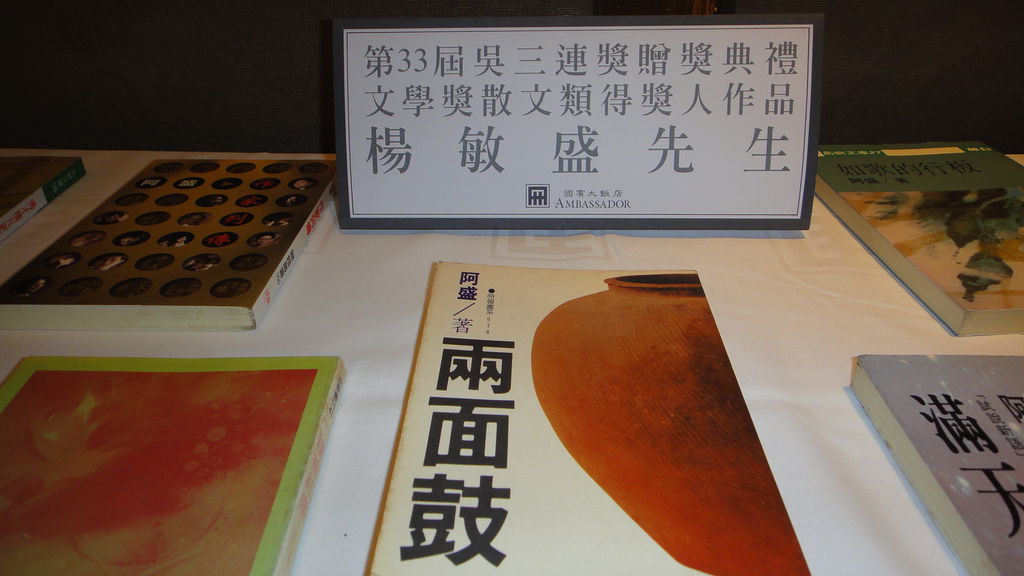 第33屆吳三連獎贈獎典禮
文學獎散文類得獎人作品
楊敏盛先生
國賓大飯店
AMBASSADOR
阿盛
如歌的行板
阿盛／著
阿盛／著
●時報書系514
兩面鼓
滿天